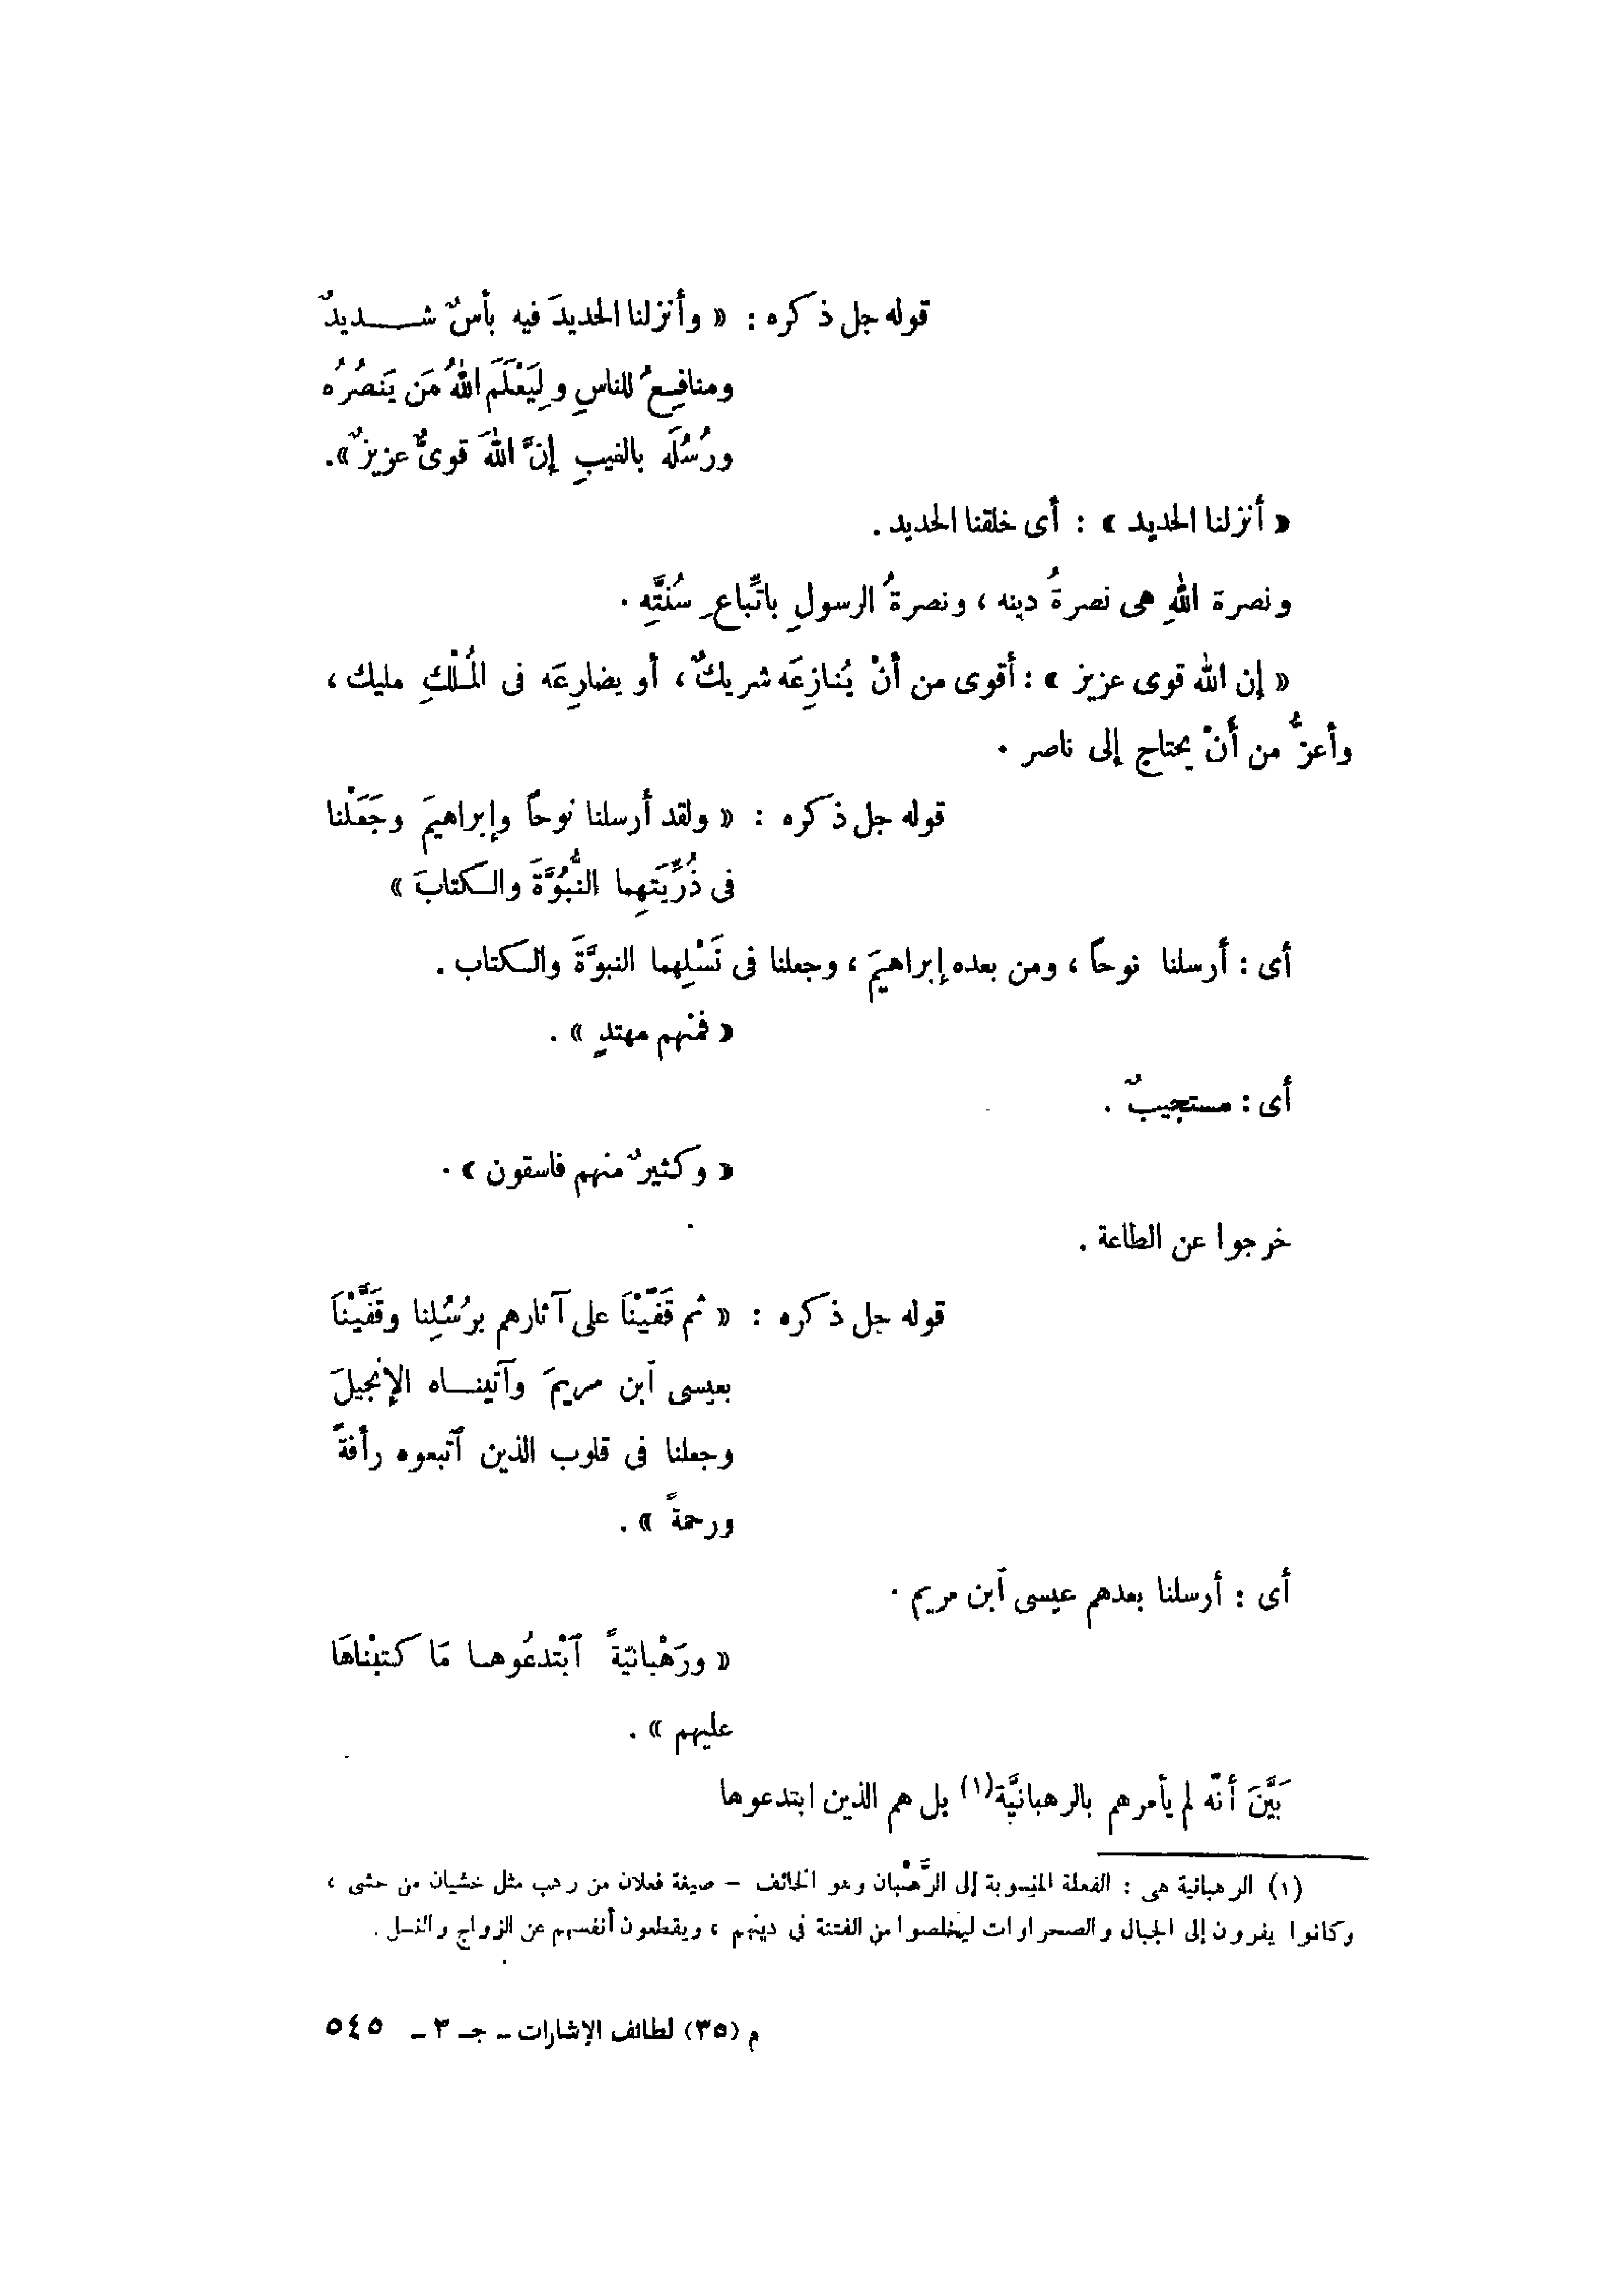 قوله جل ذكره : « وأنزلنا الحديدَ فيه بأسٌ شـــديدٌ
ومنافِعُ للناسِ ولِيَعْلَمَ اللهُ مَن يَنصُرُه
ورُسُلَه بالغيبِ إنَّ اللهَ قوىٌّ عزيزٌ».
« أنزلنا الحديد » : أى خلقنا الحديد .
ونصرة اللهِ هى نصرةُ دينه ، ونصرةُ الرسولِ باتِّباعِ سُنَّتِهِ .
« إن الله قوى عزيز » : أقوى من أنْ يُنازِعَه شريكٌ ، أو يضارِعَه فى المُلْكِ مليك ،
وأعزُّ من أنْ يحتاج إلى ناصر .
قوله جل ذكره : « ولقد أرسلنا نوحاً وإبراهيمَ وجَعَلْنا
فى ذُرِّيَتَهِما النُّبُوَّةَ والكتابَ »
أى : أرسلنا نوحاً ، ومن بعده إبراهيمَ ، وجعلنا فى نَسْلِهما النبوَّةَ والكتاب .
« فمنْهم مهتدٍ » .
أى : مستجيبٌ .
« وكثيرٌ منهم فاسقون » .
خرجوا عن الطاعة .
قوله جل ذكره : « ثم قَفَّيْنَا على آثارهم برُسُلِنا وقَفَّيْنَا
بعيسى ٱبن مريمَ وآتينــاه الإنجيلَ
وجعلنا فى قلوب الذين ٱتبعوه رأفةً
ورحمةً » .
أى : أرسلنا بعدهم عيسى ٱبن مريم .
« ورَهْبانيّةً ٱبْتدعُوهـا مَا كتبْناهَا
عليهم » .
بَيَّنَ أنّه لم يأمرهم بالرهبانيَّة(١) بل هم الذين ابتدعوها
(١) الرهبانية هى : الفعلة المنسوبة إلى الرَّهْبان وهو الخائف – صيغة فعلان من رهب مثل خشيان من خشى ،
وكانوا يفرون إلى الجبال والصحراوات ليخلصوا من الفتنة فى دينهم ، ويقطعون أنفسهم عن الزواج والنسل .
م (٣٥) لطائف الإشارات – جـ ٣ – ٥٤٥